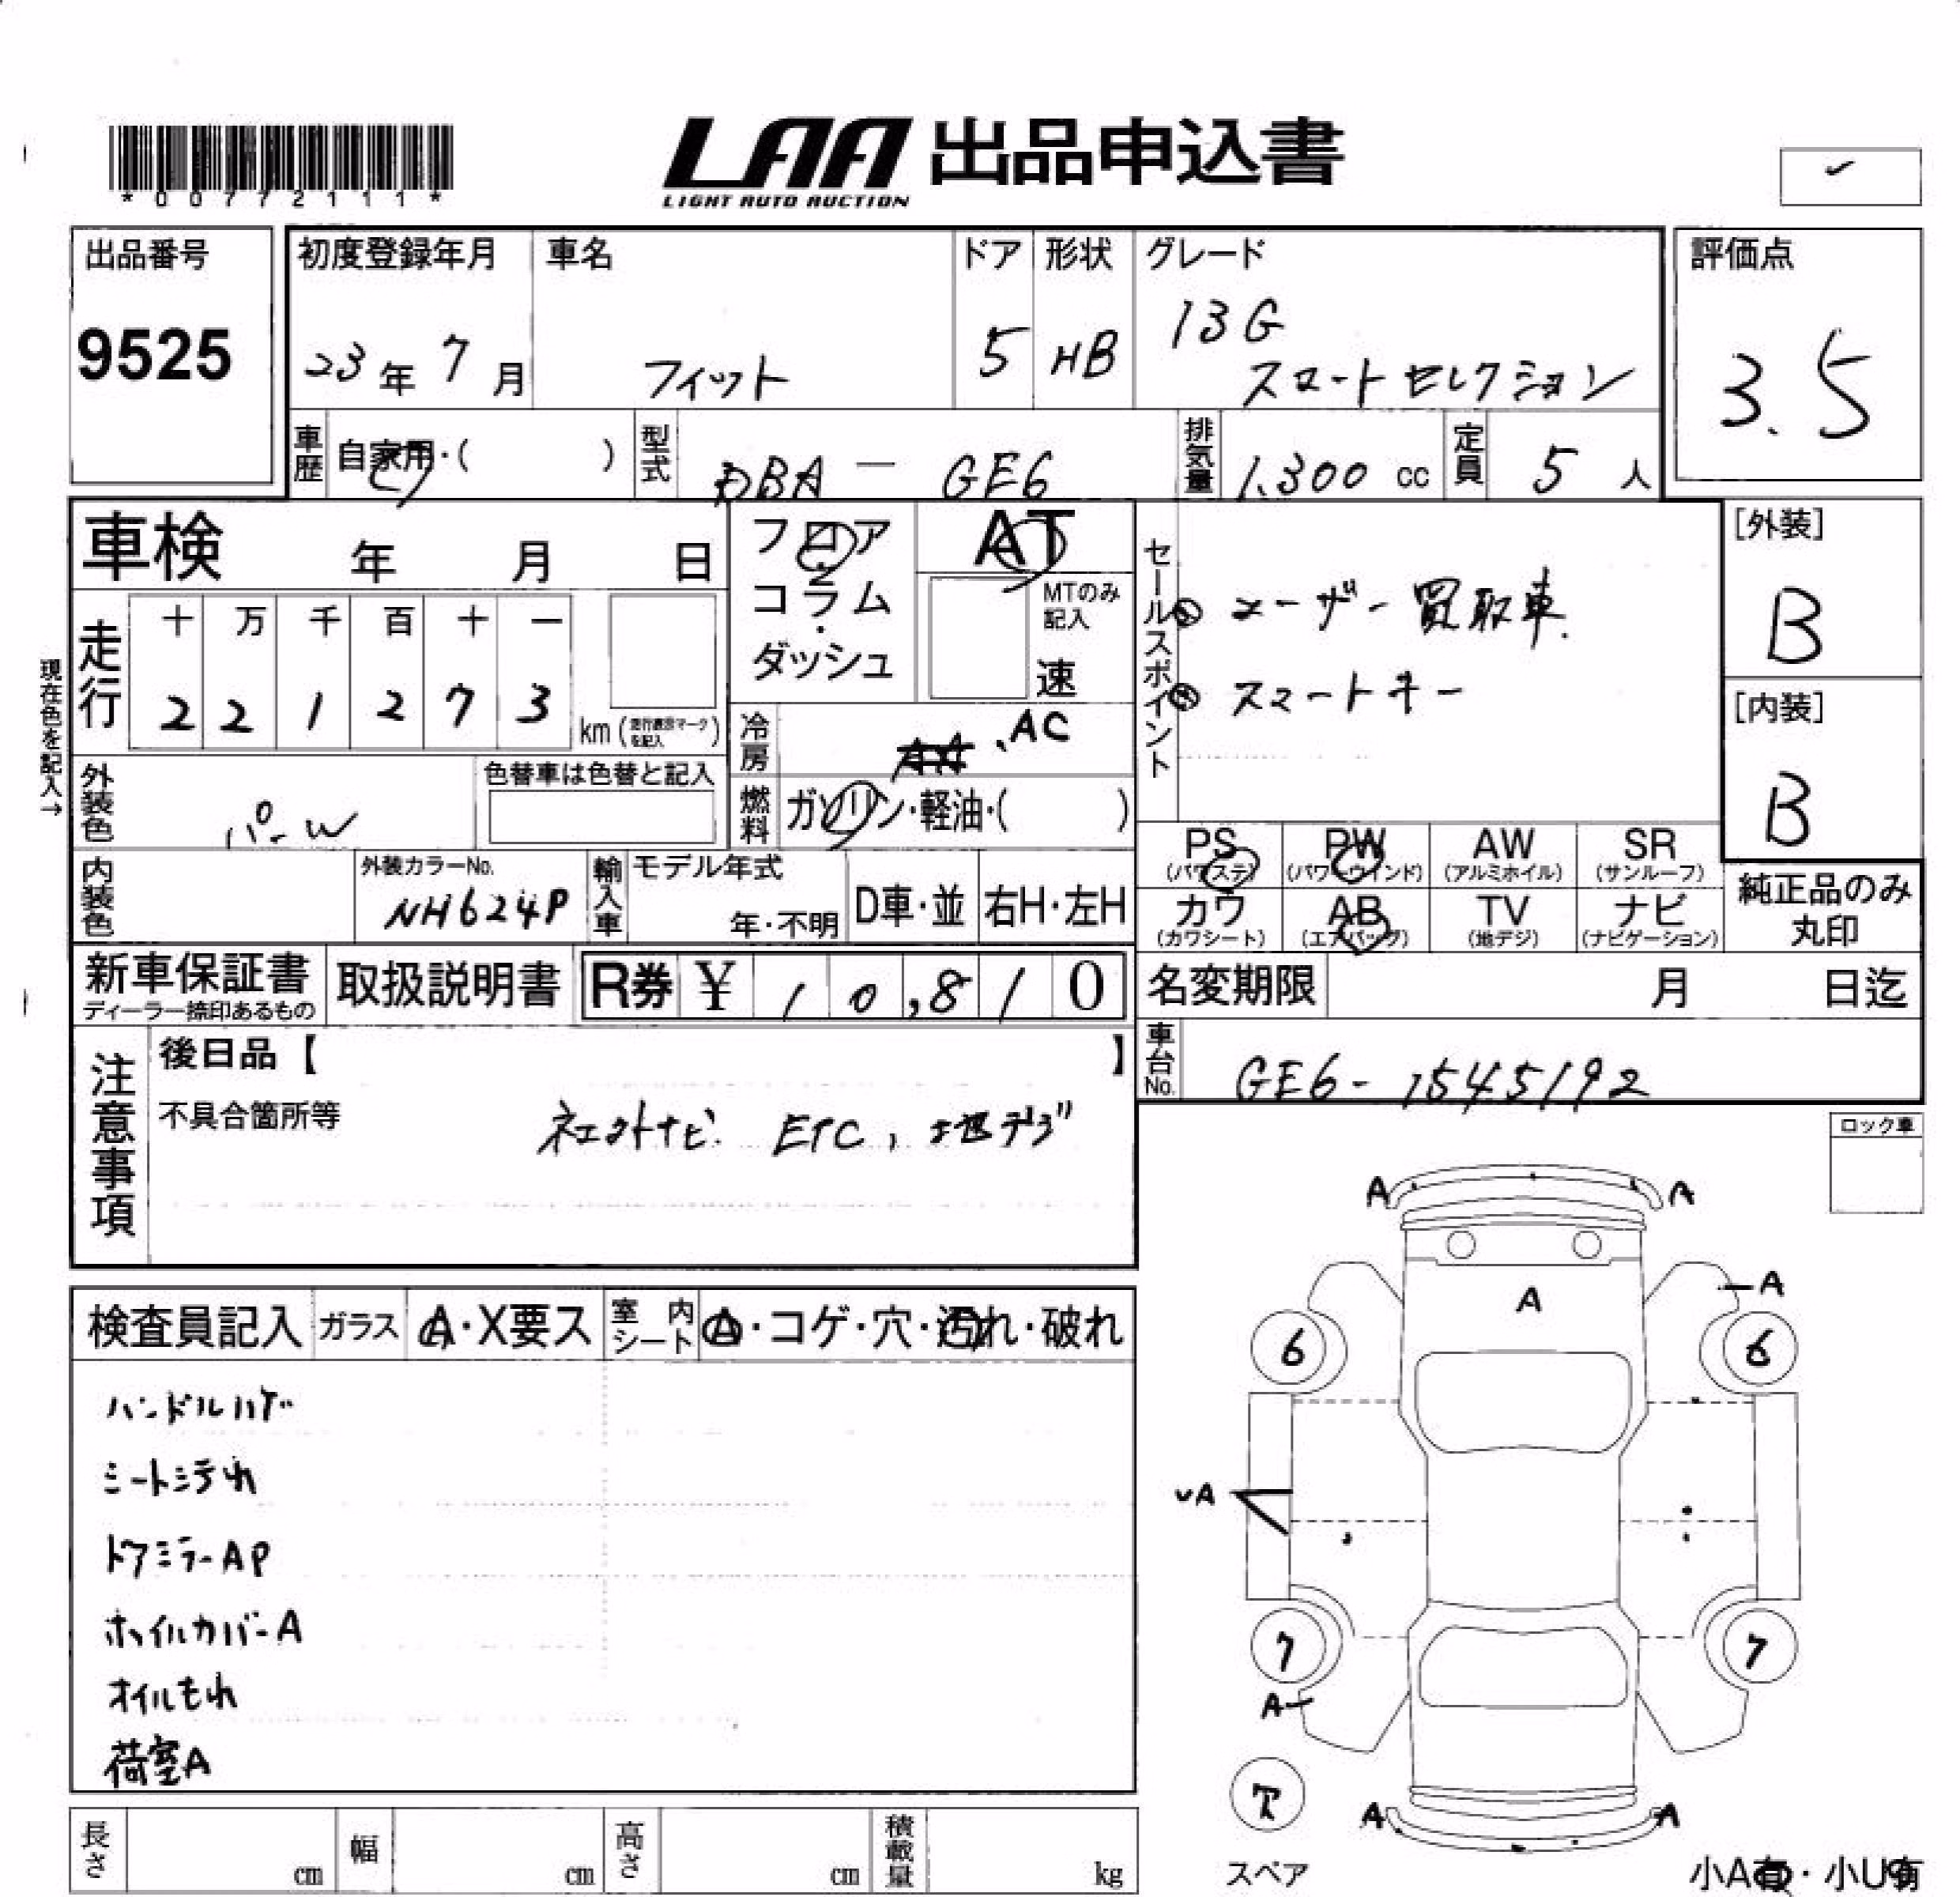 LAA 出品申込書
LIGHT AUTO AUCTION
*00772111*
出品番号
9525
初度登録年月
23年 7月
車名
フィット
ドア
5
形状
HB
グレード
13G
スマートセレクション
評価点
3.5
車歴
自家用・( )
型式
DBA - GE6
排気量
1,300 cc
定員
5 人
車検 年 月 日
フロア
・
コラム
・
ダッシュ
AT
MTのみ
記入
速
セールスポイント
① ユーザー買取車
② スマートキー
[外装]
B
[内装]
B
現在色を記入→
走行
十 万 千 百 十 一
2 2 1 2 7 3
km
冷房
AC
外装色
パーW
色替車は色替と記入
燃料
ガソリン・軽油・( )
PS
(パワステ)
PW
(パワーウインド)
AW
(アルミホイル)
SR
(サンルーフ)
カワ
(カワシート)
AB
(エアバッグ)
TV
(地デジ)
ナビ
(ナビゲーション)
純正品のみ
丸印
内装色
外装カラーNo.
NH624P
輸入車
モデル年式
年・不明
D車・並
右H・左H
新車保証書
ディーラー捺印あるもの
取扱説明書
R券 ¥ 10,810
名変期限 月 日迄
車台No.
GE6-1545192
注意事項
後日品【 】
不具合箇所等
ETC, 地デジ
ロック車
検査員記入
ガラス
A・X要ス
室内
シート
A・コゲ・穴・汚れ・破れ
ハンドルハゲ
シートシデれ
ドアミラーAP
ホイルカバーA
オイルもれ
荷室A
A A
A
A
6 6
VA
7 7
A
A A
スペア
小A有・小U有
長さ cm
幅 cm
高さ cm
積載量 kg